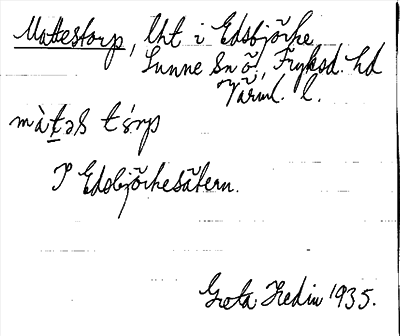 Mattestorp, lht i Edsbjörke
Sunne sn ö., Fryksd. hd
Värml. l.
màtəs tórp
I Edsbjörkesätern.
Greta Hedin 1935.